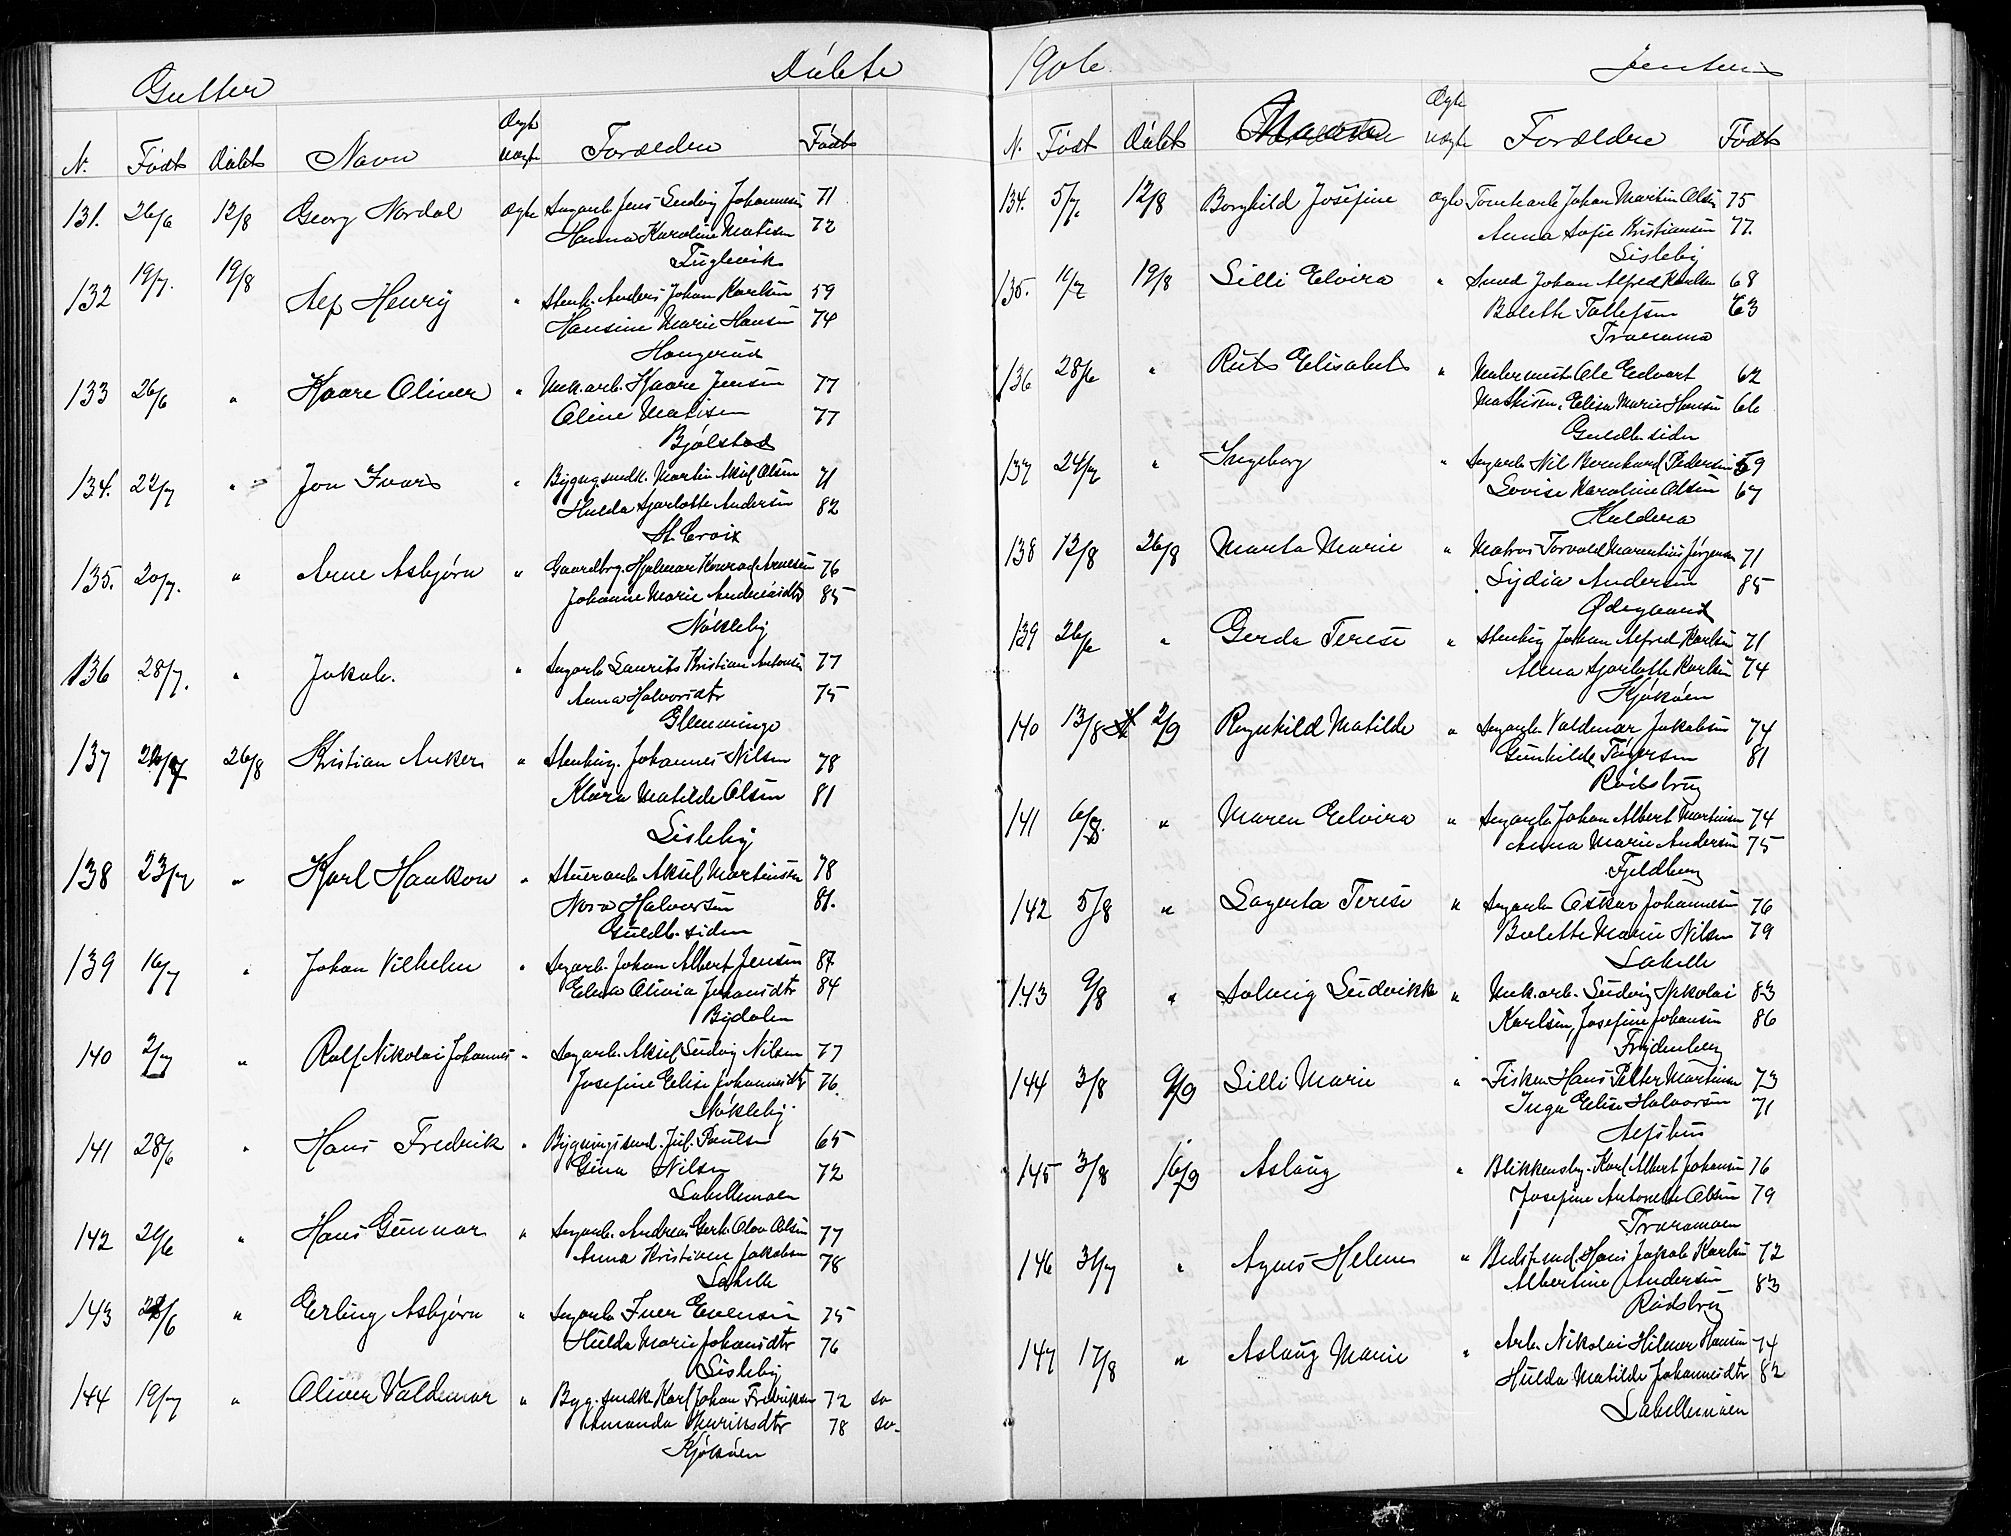 Gutter Døbte
N. Født Døbt Navn Ægte uægte Forældre Født
131. 26/6 12/8 Georg Nordal Ægte Sagarb. Jens Ludvig Johannesen 71
Hanna Karoline Matisen 72
Fuglevik
132 19/7. 19/8 Alf Henry " Stenh. Anders Johan Karlsen 59
Hansine Marie Hansen 74
Haugerud
133 26/6 " Kaare Oliver " Mek.arb. Kaare Jensen 77
Oline Matisen 77
Bjølstad
134. 22/7 " Jon Ivar " Bygn.snedk. Martin Aksel Olsen 71
Hulda Sjarlotte Andersen 82
St. Croix
135. 20/7. " Arne Asbjørn " Gaardbr. Hjalmar Konrad Arnesen 76
Johanne Marie Andreasdtr 85
Nøkleby
136 28/7. " Jakob. " Sagarb. Laurits Kristian Antonsen 77
Anna Halvorsdtr 75
Glemminge
137 22/7 26/8 Kristian Anker " Stenhug. Johannes Nilsen 78
Klara Matilde Olsen 81
Lisleby
138 23/7 " Karl Haakon " Stuerarb. Aksel Martinsen 78
Nora Halvorsen 81.
Guldb. siden
139 16/7 " Johan Vilhelm " Sagarb. Johan Albert Jensen 87
Edna Olivia Johansdtr 84
Bydalen
140 2/7 " Rolf Nikolai Johannes " Sagarb. Aksel Ludvig Nilsen 77
Josefine Elise Johannesdtr 76.
Nøkleby
141 28/6 " Hans Fredrik " Bygningssned. Jul. Paulsen 65
Gina Nilsen 72
Labellemoen
142 21/6 " Hans Gunnar " Sagarb. Andreas Gerh. Olav Olsen 77
Anna Kristiane Jakobsen 78
Labelle
143 28/6 " Erling Asbjørn " Sagarb. Iver Evensen 75
Hulda Marie Johansdtr 76
Lisleby
144 19/7 " Oliver Valdemar " Byg. snedk. Karl Johan Fredriksen 72 sv
Amanda Henriksdtr 78 sv.
Kjøkøen
1906 Jenter
N. Født Døbt Ægte uægte Forældre Født
134. 5/7. 12/8 Borghild Josefine Ægte Tomtearb. Johan Martin Olsen 75
Anna Sofie Kristiansen 77.
Lisleby
135. 11/7 19/8 Silli Elvira " Smed Johan Alfred Karlsen 68
Bolette Tollefsen 63
Traraveien
136 28/6 " Rut Elisabet " Malermest. Ole Edvart 62
Matisen, Elisa Marie Hansen 66
Guldb. siden
137 24/7 " Ingeborg " Sagarb. Nil Bernhard Pedersen 59
Lovise Karoline Olsen 67
Kuldera
138 12/8 26/8 Marta Marie " Matros Torvald Marentius Jørgensen 71
Lydia Andersen 85
Ødegaard
139 26/6 " Gerda Terese " Stenhug Johan Alfred Karlsen 71
Alma Sjarlotte Karlsen 74
Kjøkøen
140 13/8 2/9 Ragnhild Matilde " Sagarb. Valdemar Jakobsen 74
Gunhilde Torgersen 81
Rødsbrug
141 6/8. " Maren Elvira " Sagarb. Johan Albert Martinsen 74
Anna Marie Andersen 75
Fjeldberg
142 5/8 " Lagerta Terese " Sagarb. Oskar Johannesen 76
Bolette Marie Nilsen 79
Labelle
143 9/8 " Solveig Ludvikke " Mek.arb. Ludvig Nikolai 83
Karlsen, Josefine Johansen 86
Frydenberg
144 3/8 9/9 Silli Marie " Fisker Hans Petter Martinsen 73
Inga Elise Halvorsen 71
Alfshus
145 3/8 16/9 Aslaug " Blikkensl. Karl Albert Johansen 76
Josefine Antonette Olsen 79
Traramoen
146 31/7 " Agnes Helene " Bedsp.snd. Hans Jakob Karlsen 72
Albertine Andersen 83
Rødsbrug
147 17/8 " Aslaug Marie " Arb. Nikolai Hilmar Hansen 74
Hulda Matilde Johannesdtr 82
Labellemoen